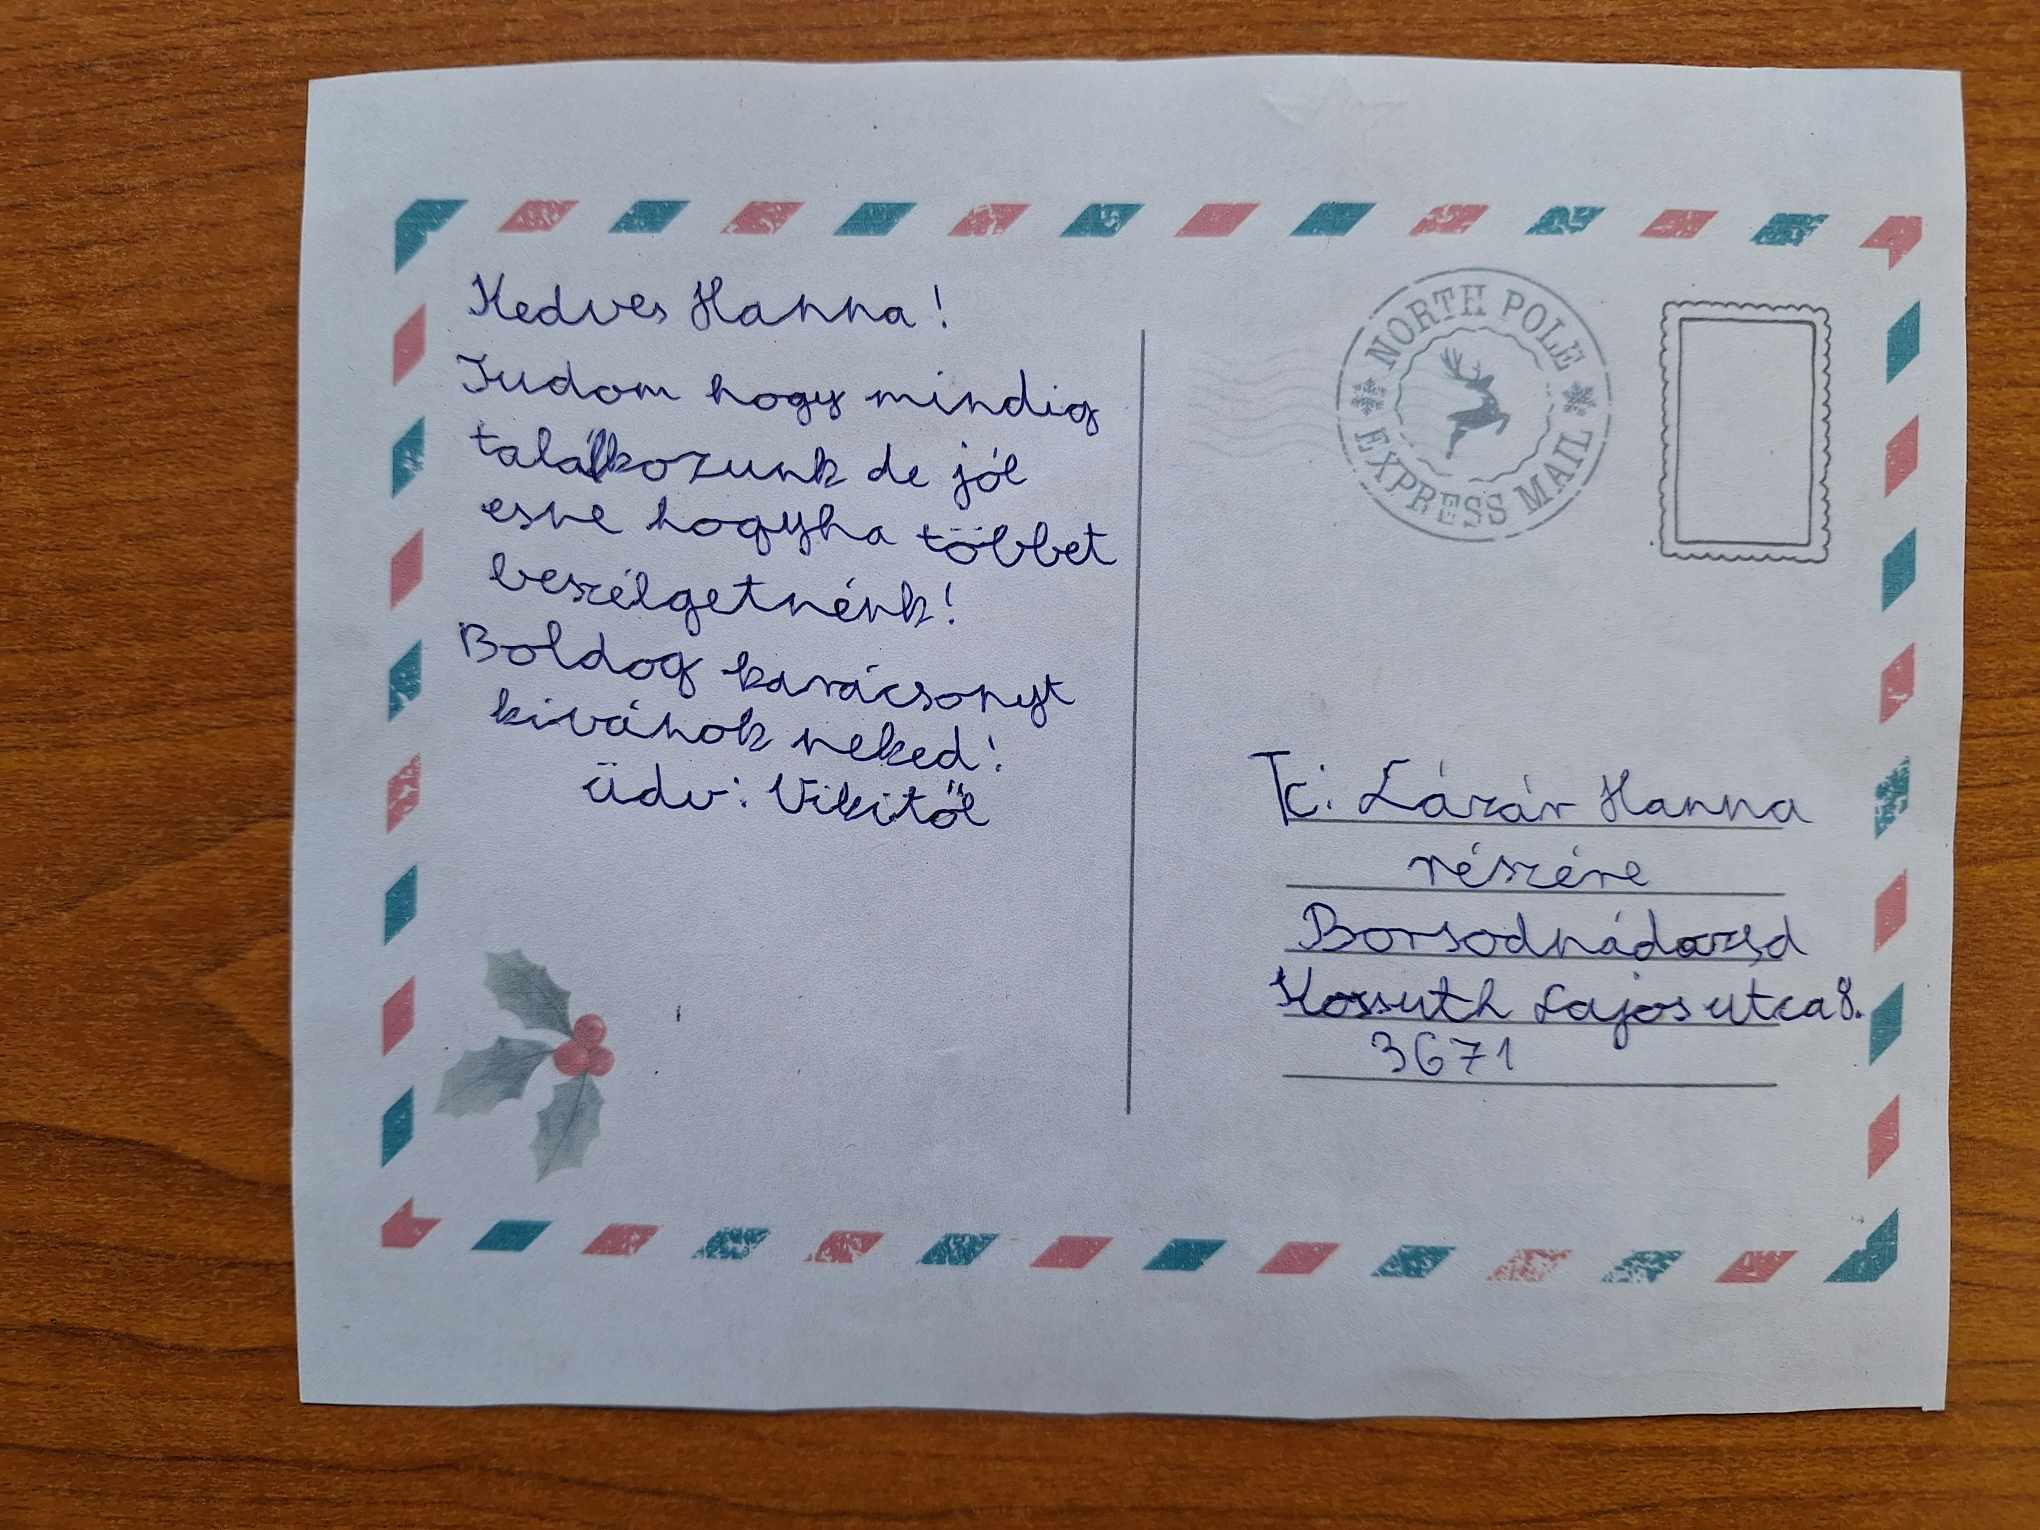 Hedves Hanna!
Tudom hogy mindig
találkozunk de jól
esne hogyha többet
beszélgetnénk!
Boldog karácsonyt
kivánok neked!
üdv: Vikitől
NORTH POLE
EXPRESS MAIL
Tc: Lázár Hanna
részére
Borsodnádasd
Kossuth Lajos utca 8.
3671